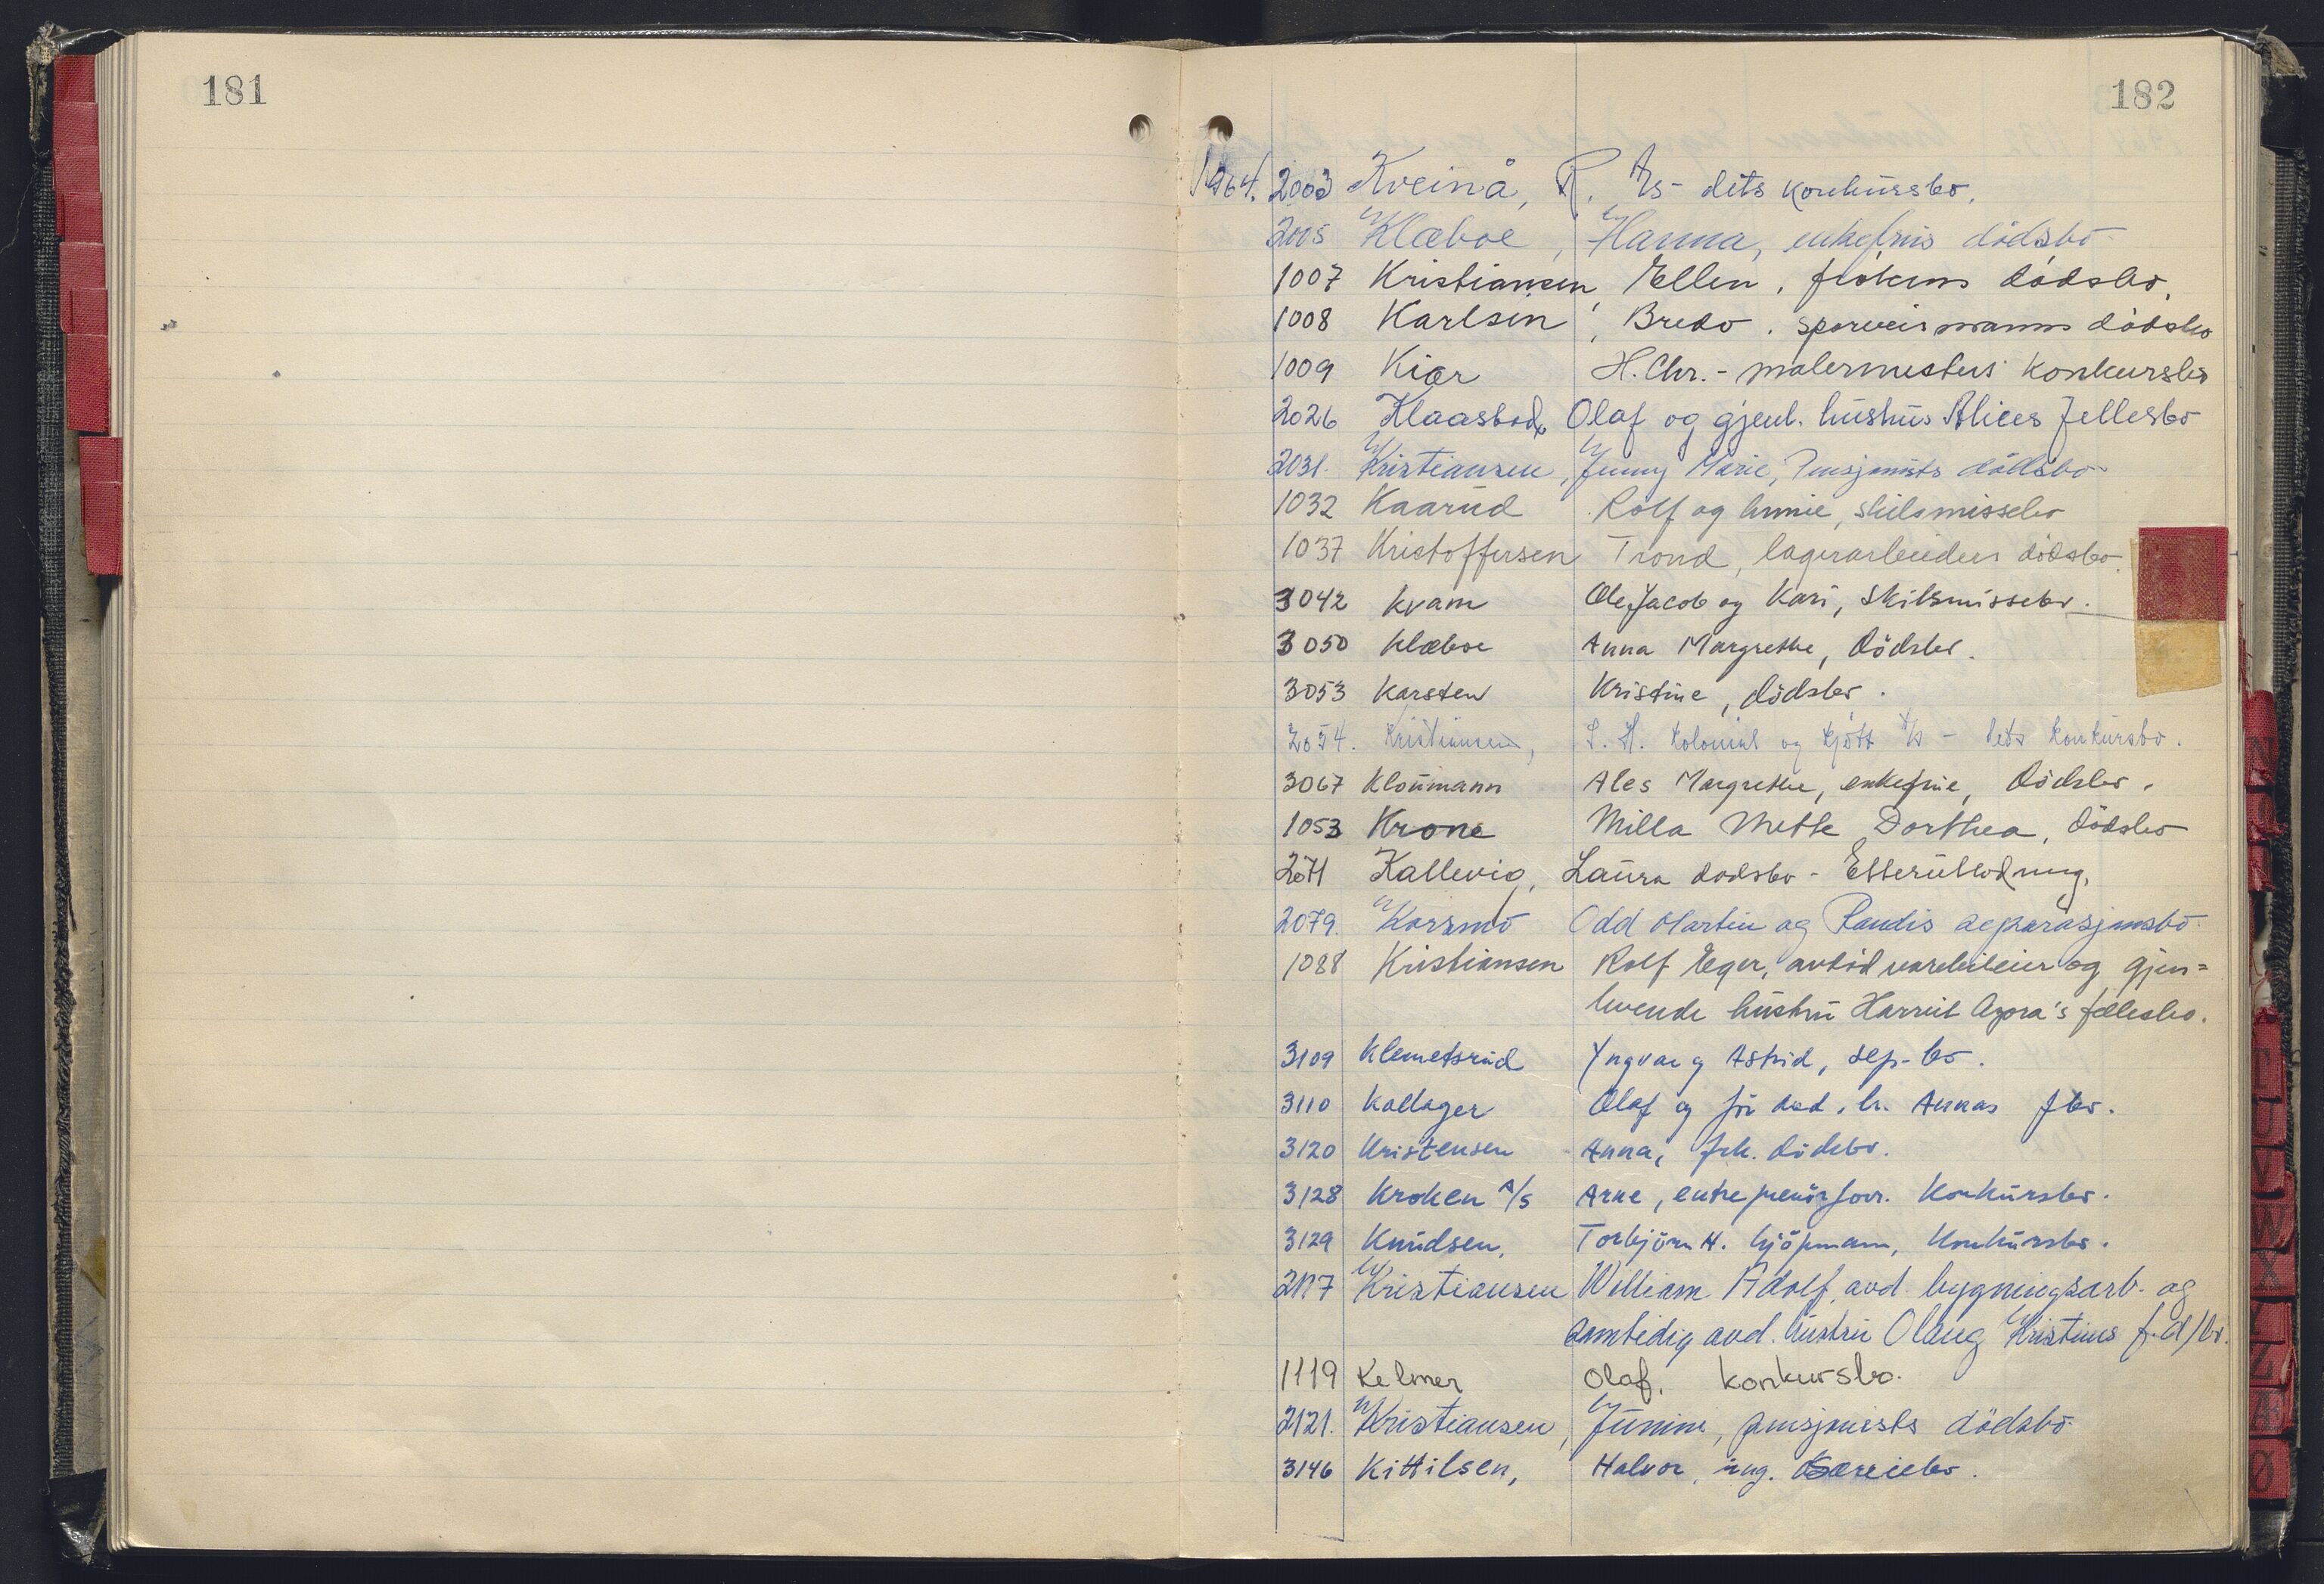 181
182
1964. 2003 Kveinå, R. A/s - dets konkursbo.
2005 Klæboe, Hanna, enkefrus dödsbo
1007 Kristiansen, Ellen, frökens dödsbo,
1008 Karlsen, Bredo, sporveismanns dödsbo
1009 Kiær H. Chr. - malermesters konkursbo
2026 Klaasbod, Olaf og gjenl. hustrus Alices fellesbo
2031. Kristiansen, Jenny Marie, Pensjonists dödsbo
1032 Kaarud Rolf og skilsmissebo
1037 Kristoffersen Trond, lagerarbeiders dödsbo.
3042 Kvam Ole Jacob og Kari, Skilsmissebo.
3050 Klæboe Anna Margrethe, dödsbo.
3053 Karsten Kristine, dödsbo.
2054. Kristiansen, L. H. Kolonial og kjött A/s - dets konkursbo.
3067 Kloumann Ales Margrethe, enkefrue, dödsbo.
1053 Krone Milla Mette Dorthea, dödsbo
2071 Kallevig, Laura dödsbo - Etterutlodning.
2079. Korsmo Odd Martin og Randis separasjonsbo
1088 Kristiansen Rolf Eger, avdöd varebileier og gjen=
levende hustru Harriet Azora's fellesbo.
3109 Klemetsrud Yngvar og Astrid, sep-bo.
3110 Kallager Olaf og för död. h. Annas fbo.
3120 Kristensen Anna, frk. dödsbo.
3128 Kroken A/S Arne, entreprenörforr. Konkursbo.
3129 Knudsen, Torbjörn H. kjöpmann, Konkursbo.
2117 Kristiansen William Adolf, avd. bygningsarb. og
samtidig avd. hustru Olaug Kristines f.d/bo.
1119 Kelmer Olaf, konkursbo.
2121. Kristiansen, Junine, pensjonists dödsbo
3146 Kittilsen, Halvor, ing.
N
T
U
V
W
X
Z
Æ
Ø